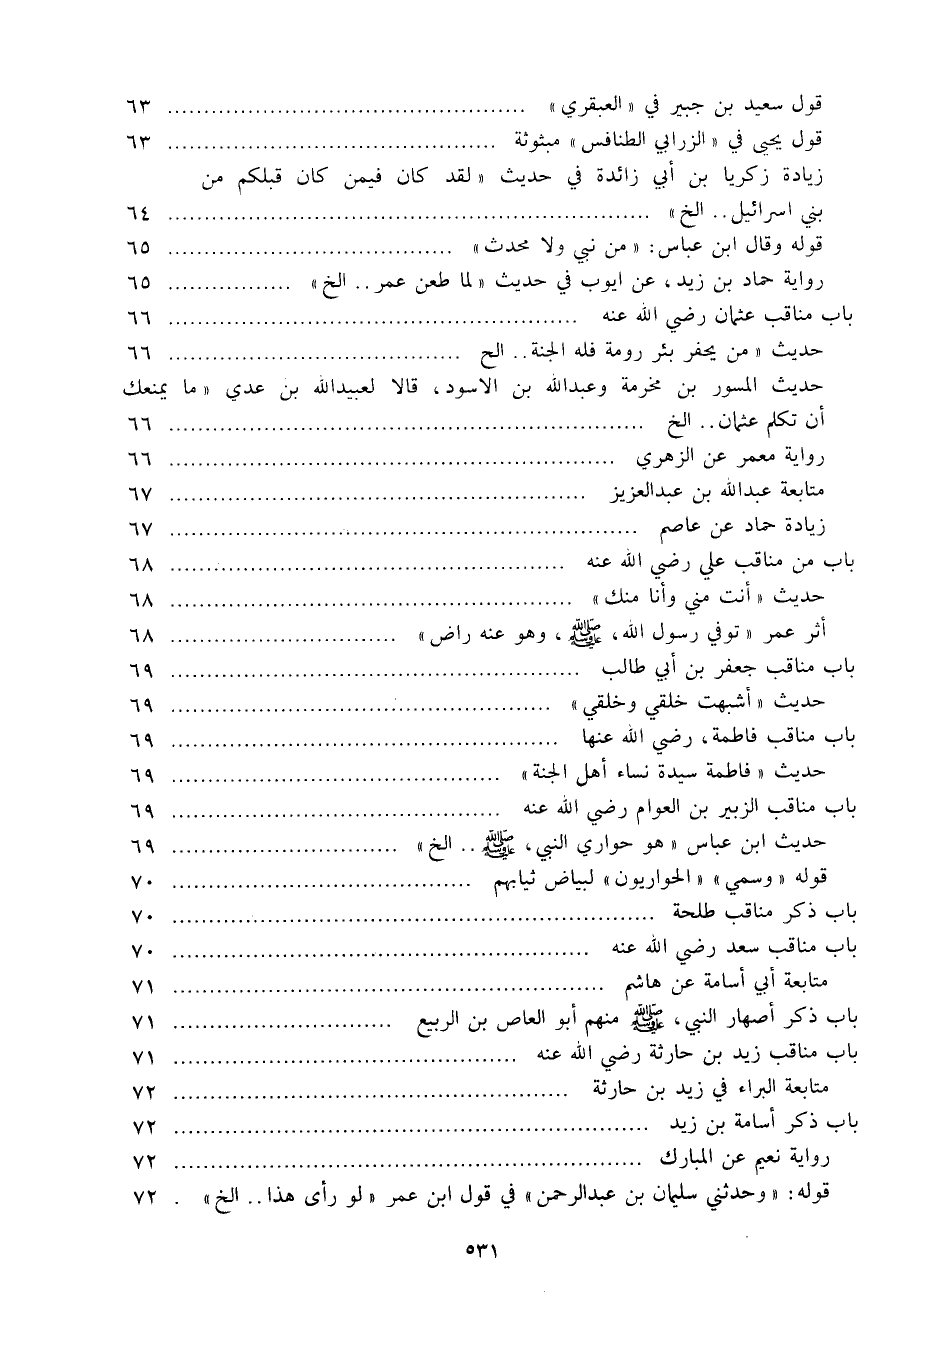 قول سعيد بن جبير في « العبقري » ................ ٦٣
قول يحيى في « الزرابي الطنافس » مبثوثة ................ ٦٣
زيادة زكريا بن أبي زائدة في حديث « لقد كان فيمن كان قبلكم من
بني اسرائيل . . الخ » ................ ٦٤
قوله وقال ابن عباس: « من نبي ولا محدث » ................ ٦٥
رواية حماد بن زيد، عن ايوب في حديث « لما طعن عمر . . الخ » ................ ٦٥
باب مناقب عثمان رضي الله عنه ................ ٦٦
حديث « من يحفر بئر رومة فله الجنة . . الح ................ ٦٦
حديث المسور بن مخرمة وعبدالله بن الاسود، قالا لعبيدالله بن عدي « ما يمنعك
أن تكلم عثمان . . الخ ................ ٦٦
رواية معمر عن الزهري ................ ٦٦
متابعة عبدالله بن عبدالعزيز ................ ٦٧
زيادة حماد عن عاصم ................ ٦٧
باب من مناقب علي رضي الله عنه ................ ٦٨
حديث « أنت مني وأنا منك » ................ ٦٨
أثر عمر « توفي رسول الله، ﷺ، وهو عنه راض » ................ ٦٨
باب مناقب جعفر بن أبي طالب ................ ٦٩
حديث « أشبهت خلقي وخلقي » ................ ٦٩
باب مناقب فاطمة، رضي الله عنها ................ ٦٩
حديث « فاطمة سيدة نساء أهل الجنة » ................ ٦٩
باب مناقب الزبير بن العوام رضي الله عنه ................ ٦٩
حديث ابن عباس « هو حواري النبي، ﷺ . . الخ » ................ ٦٩
قوله « وسمي » « الحواريون » لبياض ثيابهم ................ ٧٠
باب ذكر مناقب طلحة ................ ٧٠
باب مناقب سعد رضي الله عنه ................ ٧٠
متابعة أبي أسامة عن هاشم ................ ٧١
باب ذكر أصهار النبي، ﷺ منهم أبو العاص بن الربيع ................ ٧١
باب مناقب زيد بن حارثة رضي الله عنه ................ ٧١
متابعة البراء في زيد بن حارثة ................ ٧٢
باب ذكر أسامة بن زيد ................ ٧٢
رواية نعيم عن المبارك ................ ٧٢
قوله: « وحدثني سليمان بن عبدالرحمن » في قول ابن عمر « لو رأى هذا . . الخ » . ٧٢
٥٣١